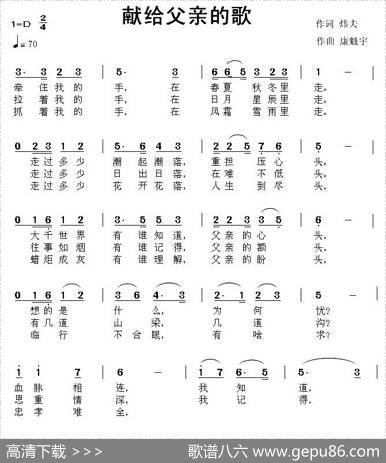 献给父亲的歌
1=D 2/4
♩=70
作词 炜夫
作曲 康魁宇
3· 3 2 3 | 5· 3 | 6 6 5 3 2 3 | 1 -
牵住我的手,在春夏秋冬里走。
拉着我的手,在日月星辰里走。
抓着我的手,在风霜雪雨里走。
0 2 3 1 2 | 5· 6 4 3 | 2· 2 5 7 | 6 -
走过多少潮起潮落,重担压心头。
走过多少日出日落,在难不低头。
走过多少花开花落,人生到尽头,
0 1 6 1 2 | 3· 5 5 3 | 2 2 3 0 3 5 | 6 -
大千世界有谁知道,父亲的心头,
往事如烟有谁记得,父亲的额头,
蜡炬成灰有谁理解,父亲的盼头,
0 1 6 1 2 | 3 6 4· 3 | 2· 1 2 3 | 5 -
想的是什么,为何忧?
有几道山梁,几道沟?
临行不合眼,有啥求?
1 1 7 | 6 - | 1 7 6 5 | 5 - 3
血脉相连,我知道,
恩重情深,我记得,
忠孝难全,
高清下载 >>> 歌谱八六 www.gepu86.com